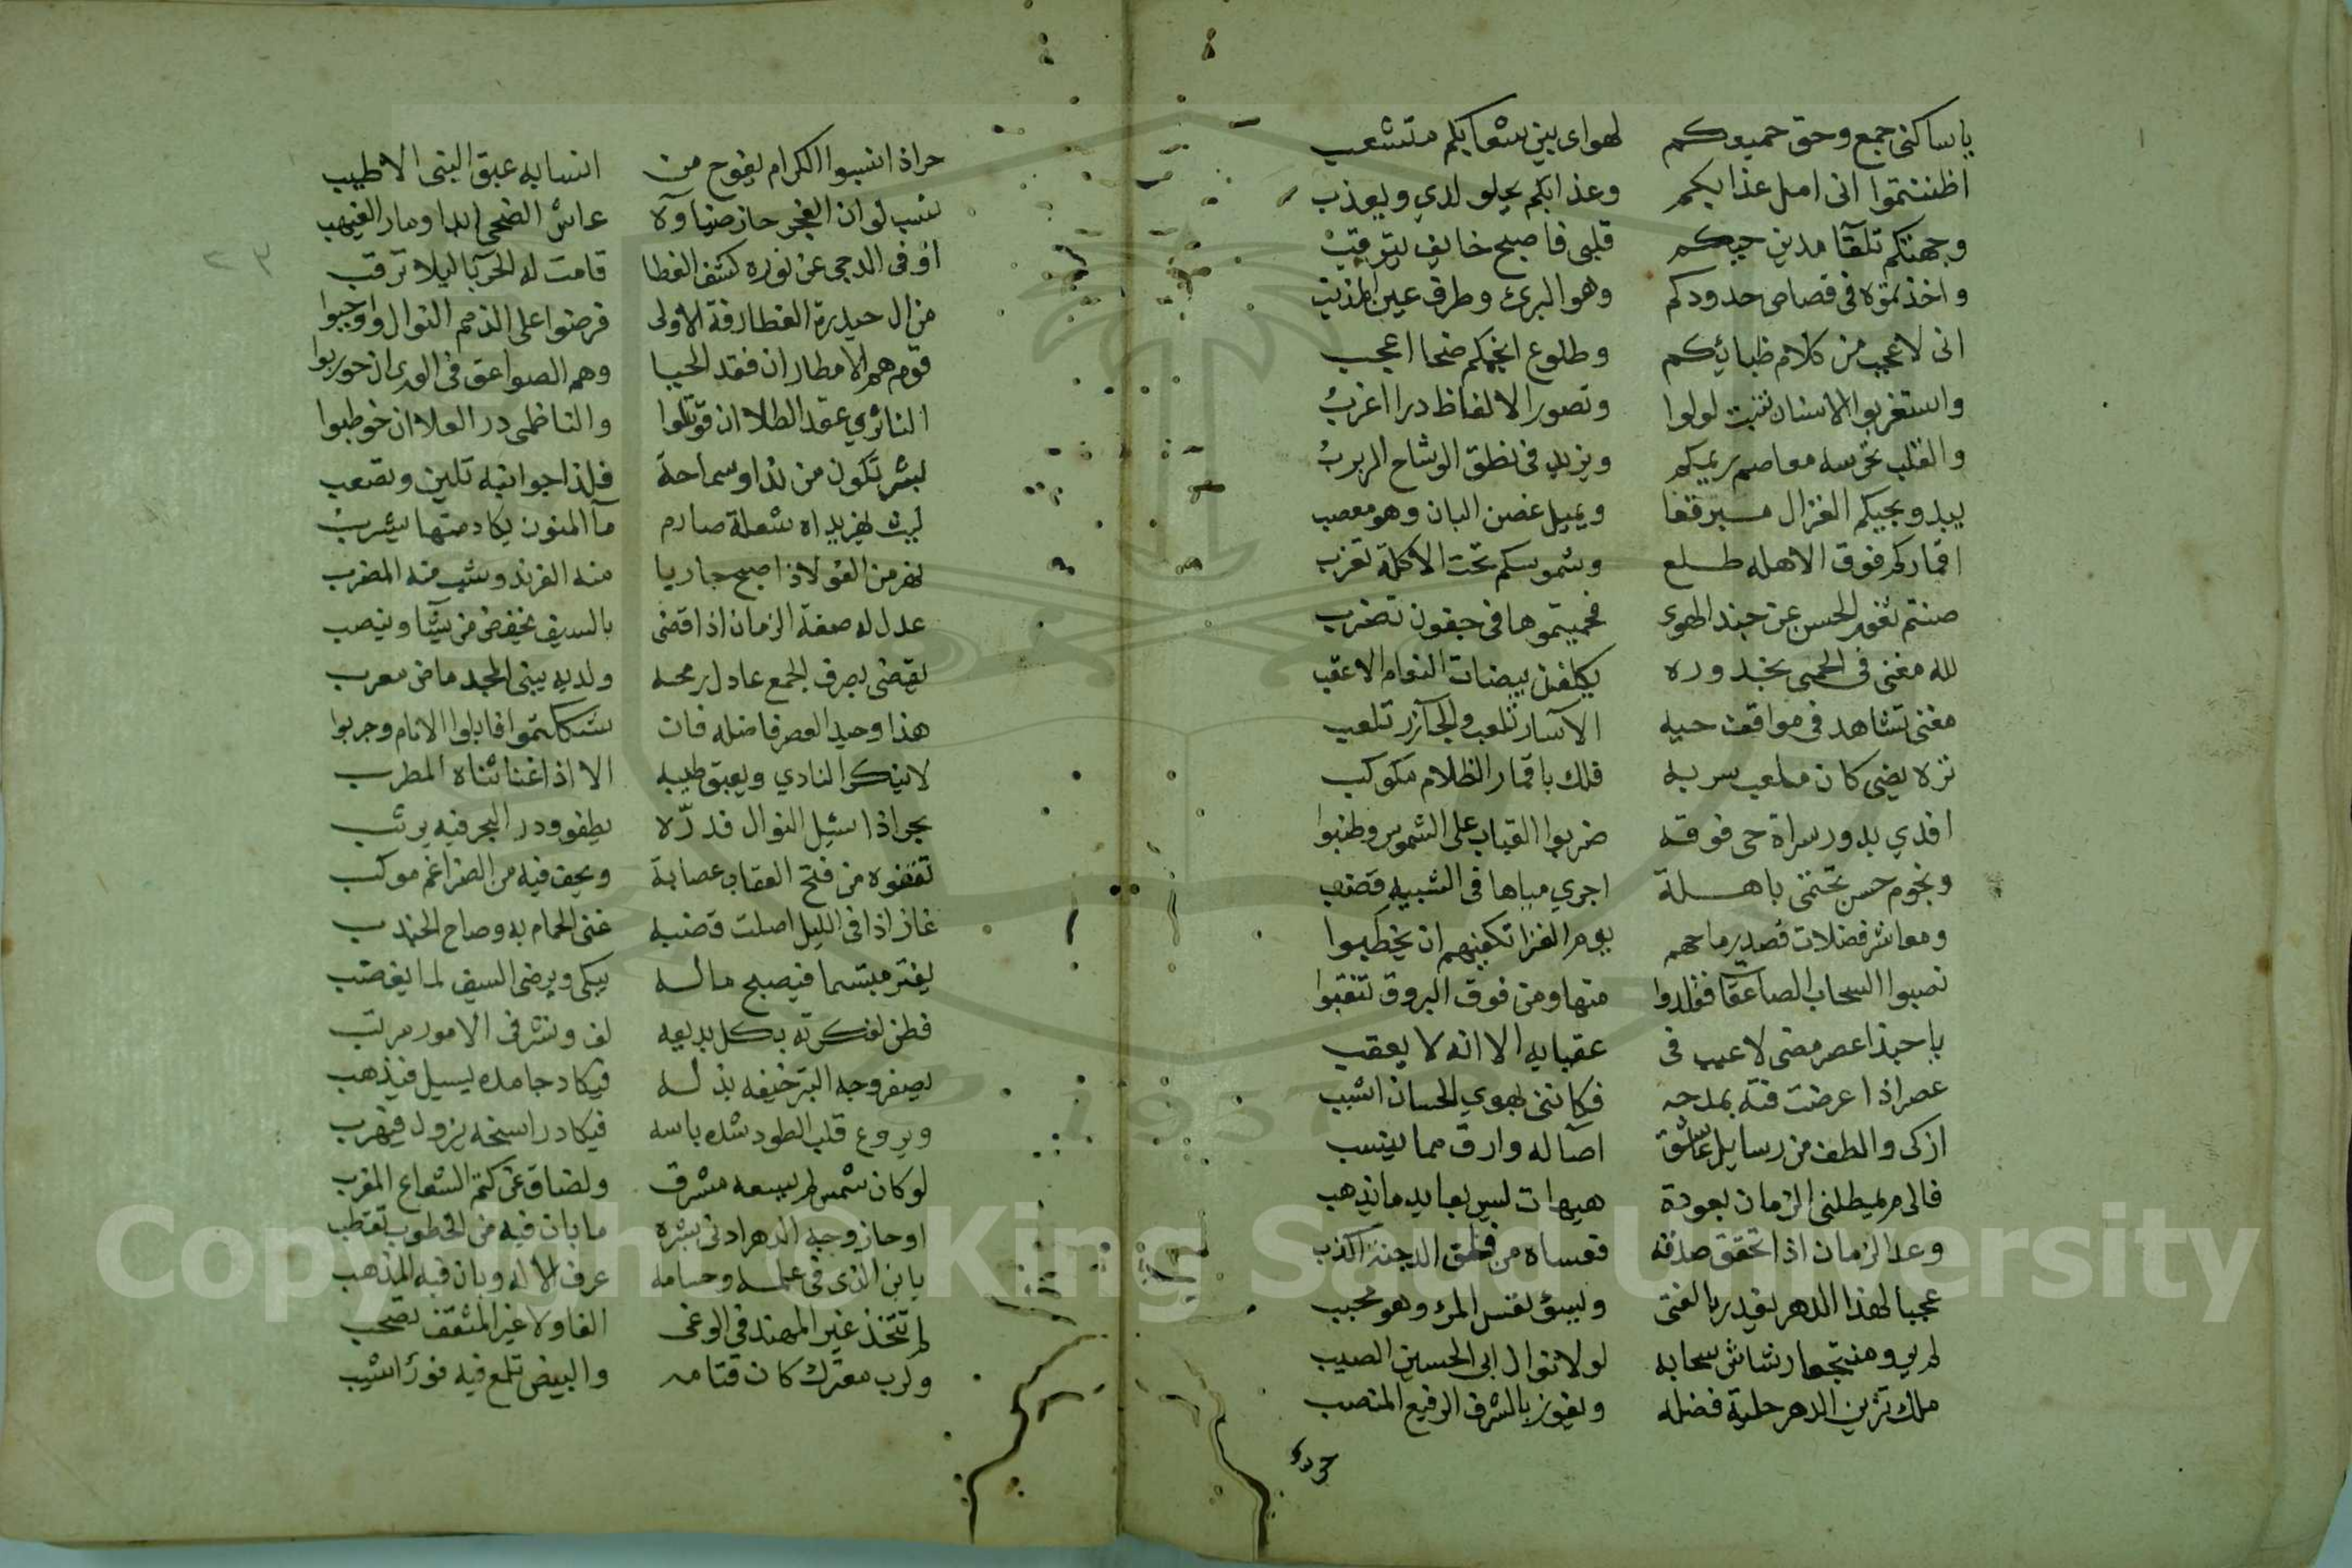 يا ساكنى جمع وحق جميعكم لهواى بين شعابكم متشعب
اظننتموا انى امل عذابكم وعذابكم يحلو لدي ويعذب
وجهتكم تلقآ مدين حيكم قلبى فاصبح خايف يترقب
واخذتموه فى قصاص حدودكم وهو البرئ وطرف عين المذنب
انى لاعجب من كلام ظبائيكم وطلوع انجمكم ضحا اعجب
واستغربوا الاسنان تنبت لولوا وتصور الالفاظ درا اغرب
والقلب تخرسه معاصم ريمكم ويزيد فى نطق الوشاح الربرب
يبدو بحيكم الغزال مبرقعا ويميل غصن البان وهو معصب
اقماركم فوق الاهله طلع وشموسكم تحت الاكلة تغرب
صنتم ثغور الحسن عن جند الهوى فحميتموها فى جفون تضرب
لله مغنى فى الحمى بخدوره يكلفن بيضات النعام الاعقب
مغنى تشاهد فى مواقف حيه الآساد تلعب والجآزر تلعب
نزه يضى كان ملعب سربه فلك باقمار الظلام مكوكب
افدي بدور سراة حى فوقه ضربوا القباب على الشموس وطنبوا
ونجوم حسن تختفى باهلة اجري مياها فى الشبيبه قضب
ومعاشر فضلات قصد رماحهم يوم الغزا تكفيهم ان يخطبوا
نصبوا السحاب الصاعقات فقلدوا منها ومن فوق البروق تنقبوا
يا حبذا عصر مضى لاعيب فى عقبايه الا انه لا يعقب
عصر اذا عرضت فنه بمدحه فكاننى بهوي الحسان اشبب
ازكى والطف من رسايل عاشق اصآله وارق مما ينسب
فالى م يمطلنى الزمان بعودة هيهات ليس بعايد ما يذهب
وعد الزمان اذا تحقق صدقه فعساه من فلق الدجنة اكذب
عجبا لهذا الدهر يغدر بالفتى ويسؤ نفس المرؤ وهو محبب
لم يرو منتجعا رشاش سحابه لولا نوال ابى الحسين الصيب
ملك تزين الدهر حلية فضله ويفوز بالشرف الرفيع المنصب
حر اذ
حر اذ انتسبوا الكرام يفوح من انسابه عبق النبى الاطيب
نسب لو ان الفجر حاز ضياءه عاش الضحى ابدا ومار الغيهب
او فى الدجى عن نوره كشف الغطا قامت له الحربا ليلا ترقب
من ال حيدرة الغطارفة الاولى فرضوا على الذمم النوال واوجبوا
قوم هم الامطار ان فقد الحيا وهم الصواعق فى الورى ان حوربوا
الناثري عقد الطلا ان قوتلوا والناظمى در العلا ان خوطبوا
بشر تكون من ندا وسماحة فلذا جوانبه تلين وتصعب
ليث يهز يداه شعلة صارم مآ المنون يكاد منها يشرب
نهر من الفولاذ اصبح جاريا منه الفرند وشب منه المضرب
عدل له صفة الزمان اذا قضى بالسيف يخفض من يشا وينصب
يقضى بصرف الجمع عادل رمحه ولديه يبنى المجد ماض معرب
هذا وحيد العصر فاضله فان شككتموا فابلوا الانام وجربوا
لا يذكر النادي ويعبق طيبه الا اذا غنا ثناه المطرب
بحر اذا سئيل النوال فدره لا يطفو ودر البحر فيه يرسب
تقفوه من فتح العقاب عصابة ويحف فيه من الضراغم موكب
غاز اذا فى الليل اصلت قضبه غنى الحمام به وصاح الجندب
يفتر مبتسما فيصبح ماله يبكى ويرضى السيف لما يغضب
فطن لفكرته بكل بديعه لف ونشر فى الامور مرتب
يصفر وجه التبر خيفه بذله فيكاد جامده يسيل فيذهب
ويروع قلب الطود شده باسه فيكاد راسخه يزول فيهرب
لو كان شمسا لم يسعه مشرق ولضاق عن كتم الشعاع المغرب
او حاز وجه الدهر ادنى بشره ما بان فيه من الخطوب تقطب
يا بن الذى فى علمه وحسامه عرف الاله وبان فيه المذهب
لم تتخذ غير المهند فى الوغى الفا ولا غير المثقف تصحب
ولرب معترك كان قتامه والبيض تلمع فيه فود اشيب
٢٣
Copyright © King Saud University
1957